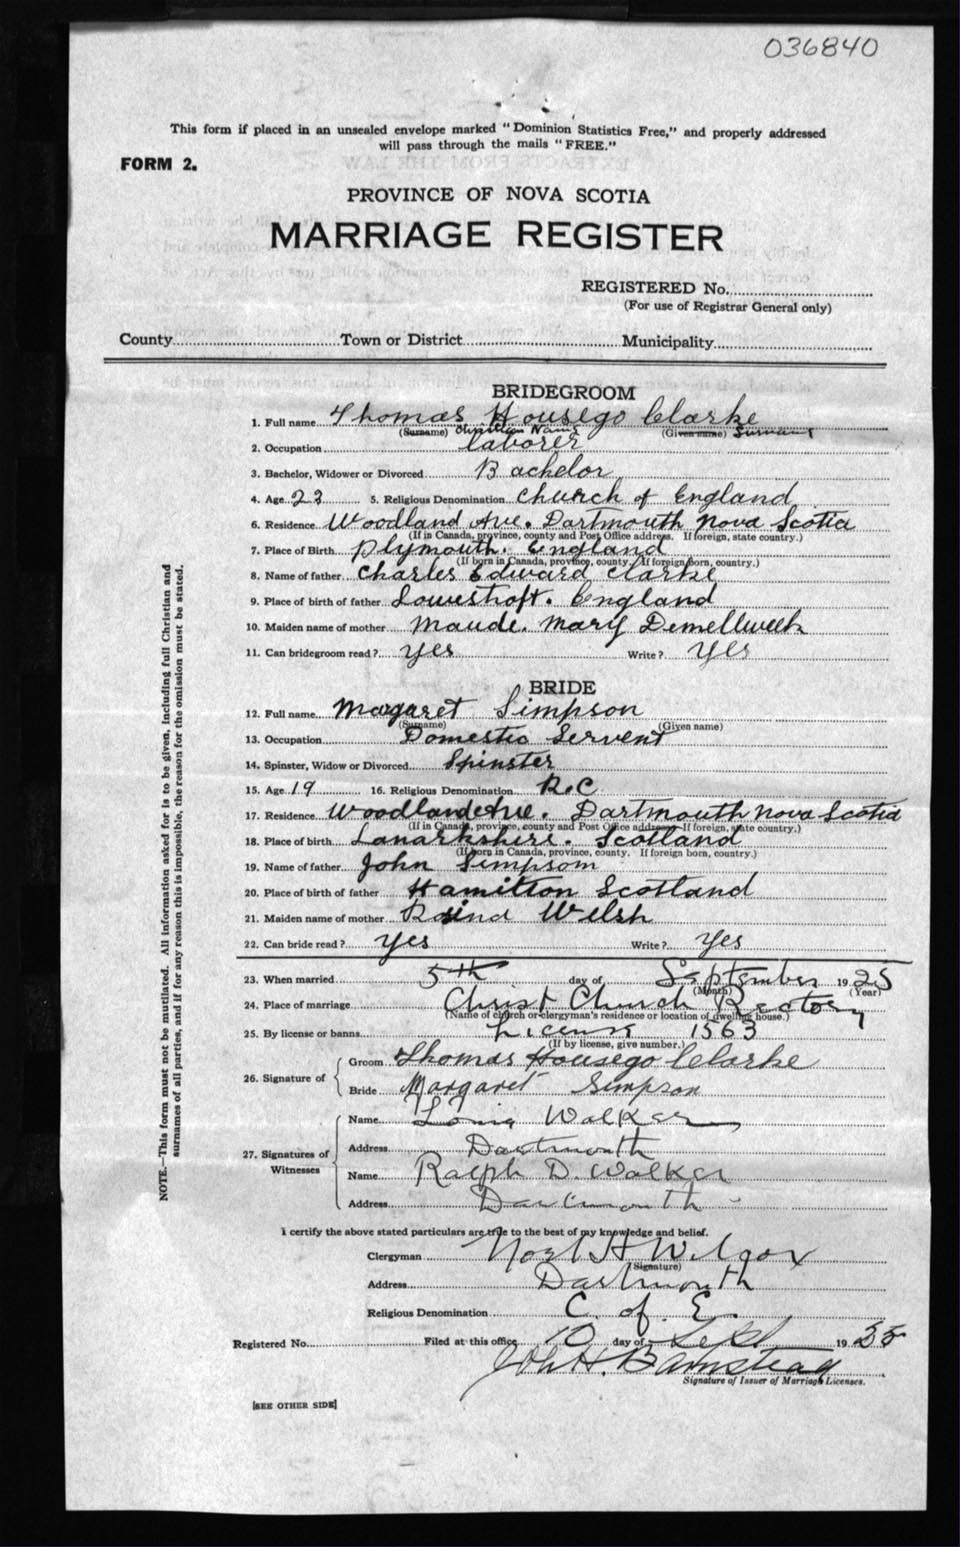 036840
This form if placed in an unsealed envelope marked "Dominion Statistics Free," and properly addressed
will pass through the mails "FREE."
FORM 2.
PROVINCE OF NOVA SCOTIA
MARRIAGE REGISTER
REGISTERED No.
(For use of Registrar General only)
County Town or District Municipality
BRIDEGROOM
1. Full name Thomas Housego Clarke
(Surname) Christian Name (Given name) Surname
2. Occupation laborer
3. Bachelor, Widower or Divorced Bachelor
4. Age 23 5. Religious Denomination Church of England
6. Residence Woodland Ave. Dartmouth Nova Scotia
(If in Canada, province, county and Post Office address. If foreign, state country.)
7. Place of Birth Plymouth. England
(If born in Canada, province, county. If foreign born, country.)
8. Name of father Charles Edward Clarke
9. Place of birth of father Lowestoft. England
10. Maiden name of mother Maude. Mary
11. Can bridegroom read? yes Write? yes
BRIDE
12. Full name Margaret Simpson
(Surname) (Given name)
13. Occupation Domestic Servent
14. Spinster, Widow or Divorced Spinster
15. Age 19 16. Religious Denomination R.C
17. Residence Woodland Ave. Dartmouth Nova Scotia
(If in Canada, province, county and Post Office address. If foreign, state country.)
18. Place of birth Lanarkshire. Scotland
(If born in Canada, province, county. If foreign born, country.)
19. Name of father John Simpson
20. Place of birth of father Hamilton Scotland
21. Maiden name of mother Welsh
22. Can bride read? Yes Write? Yes
23. When married 5th day of September 1925
(Month) (Year)
24. Place of marriage Christ Church Rectory
(Name of church or clergyman's residence or location of dwelling house.)
25. By license or banns License 1563
(If by license, give number.)
26. Signature of
Groom Thomas Housego Clarke
Bride Margaret Simpson
27. Signatures of Witnesses
Name Walker
Address Dartmouth
Name Ralph D. Walker
Address Dartmouth
I certify the above stated particulars are true to the best of my knowledge and belief.
Clergyman Noel H Wilcox
(Signature)
Address Dartmouth
Religious Denomination C. of E.
Registered No. Filed at this office 10 day of Sept 1925
John H. Barnstead
Signature of Issuer of Marriage Licenses.
[SEE OTHER SIDE]
NOTE.—This form must not be mutilated. All information asked for is to be given, including full Christian and
surnames of all parties, and if for any reason this is impossible, the reason for the omission must be stated.